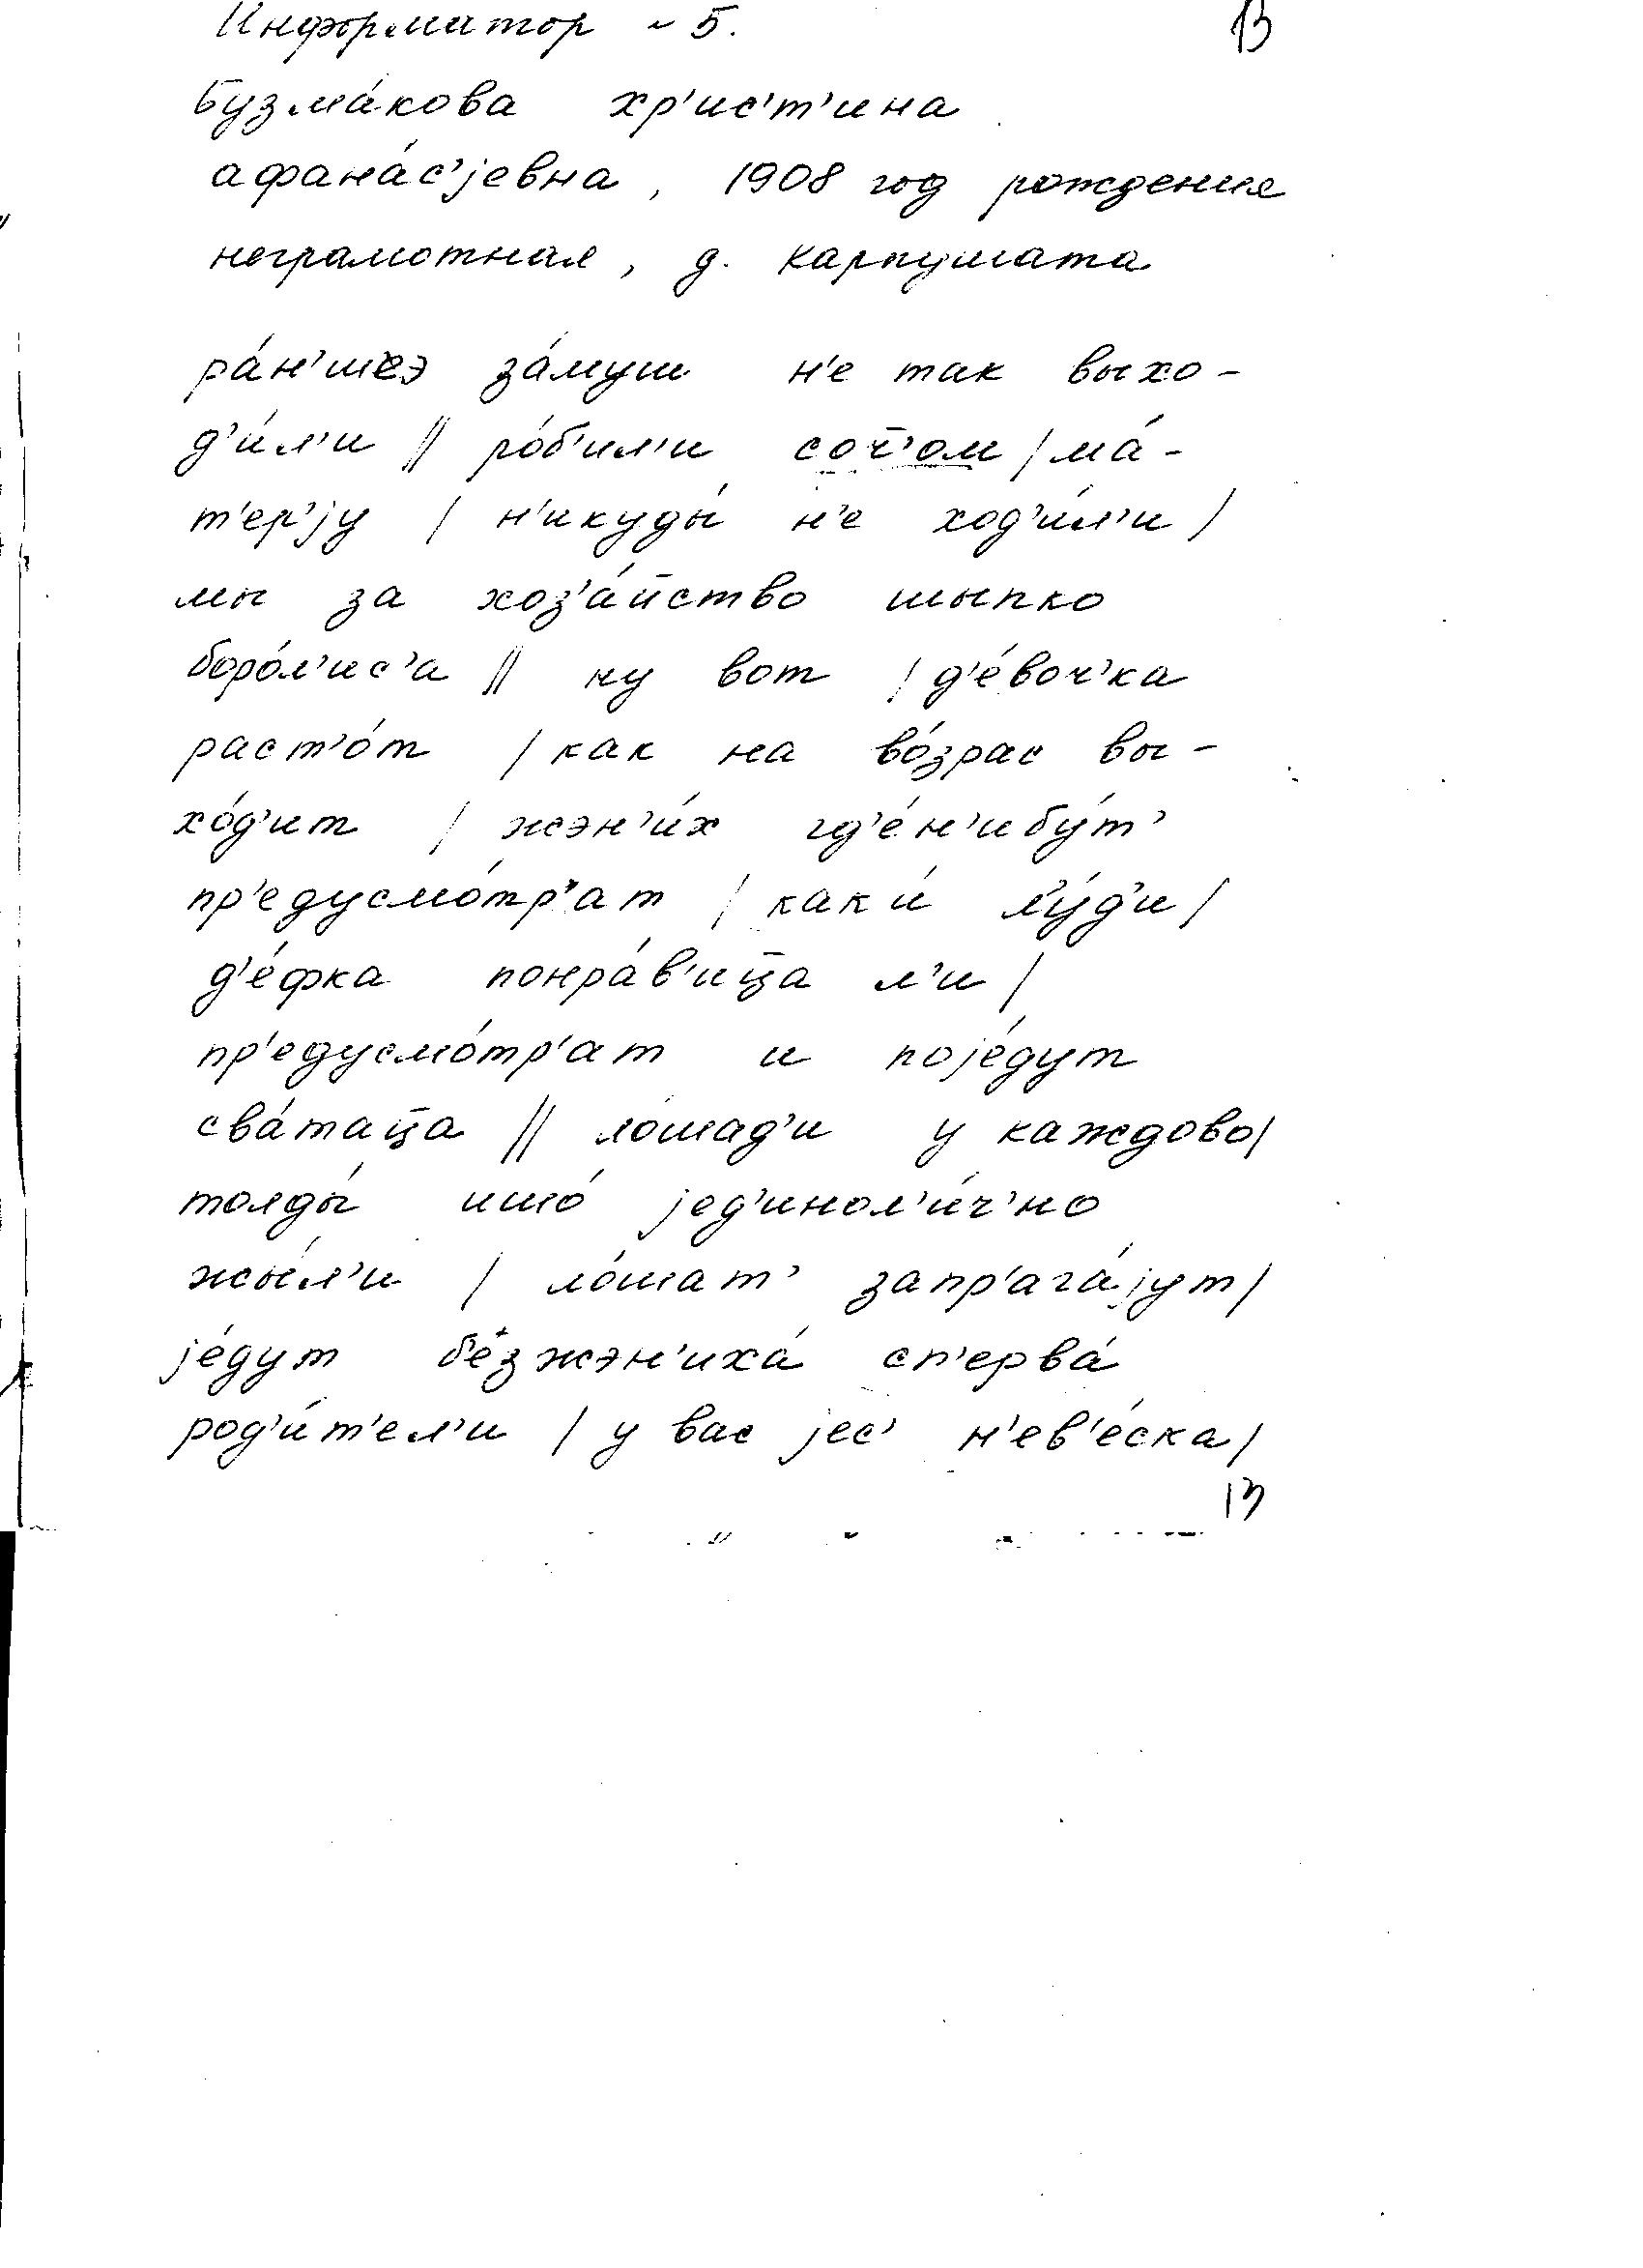 Информатор ~ 5. 13
Бузма́кова хр'ис'т'ина
афана́с'jевна, 1908 год рождения
неграмотная, д. Карпушата
ра́н'шеэ за́муш н'е так выхо-
д'и́л'и || ро́б'ил'и с от'ом | ма́-
т'ер'jу | н'икуды́ н'е ход'и́л'и |
мы за хоз'а́йство шыпко
боро́л'ис'а || ну вот | д'е́воч'ка
раст'о́т | как на во́зрас вы-
хо́д'ит | жэн'и́х гд'е́н'ибу́т'
пр'едусмо́тр'ат | каки́ л'у́д'и |
д'е́фка понра́в'ица л'и |
пр'едусмо́тр'ат и поjе́дут
сва́таца || ло́шад'и у каждово |
толды́ ишо́ jед'инол'и́ч'но
жы́л'и | ло́шат' запр'ага́jут |
jе́дут б'е́зжэн'иха́ сп'ерва́
род'и́т'ел'и | у вас jес' н'ев'е́ска |
13